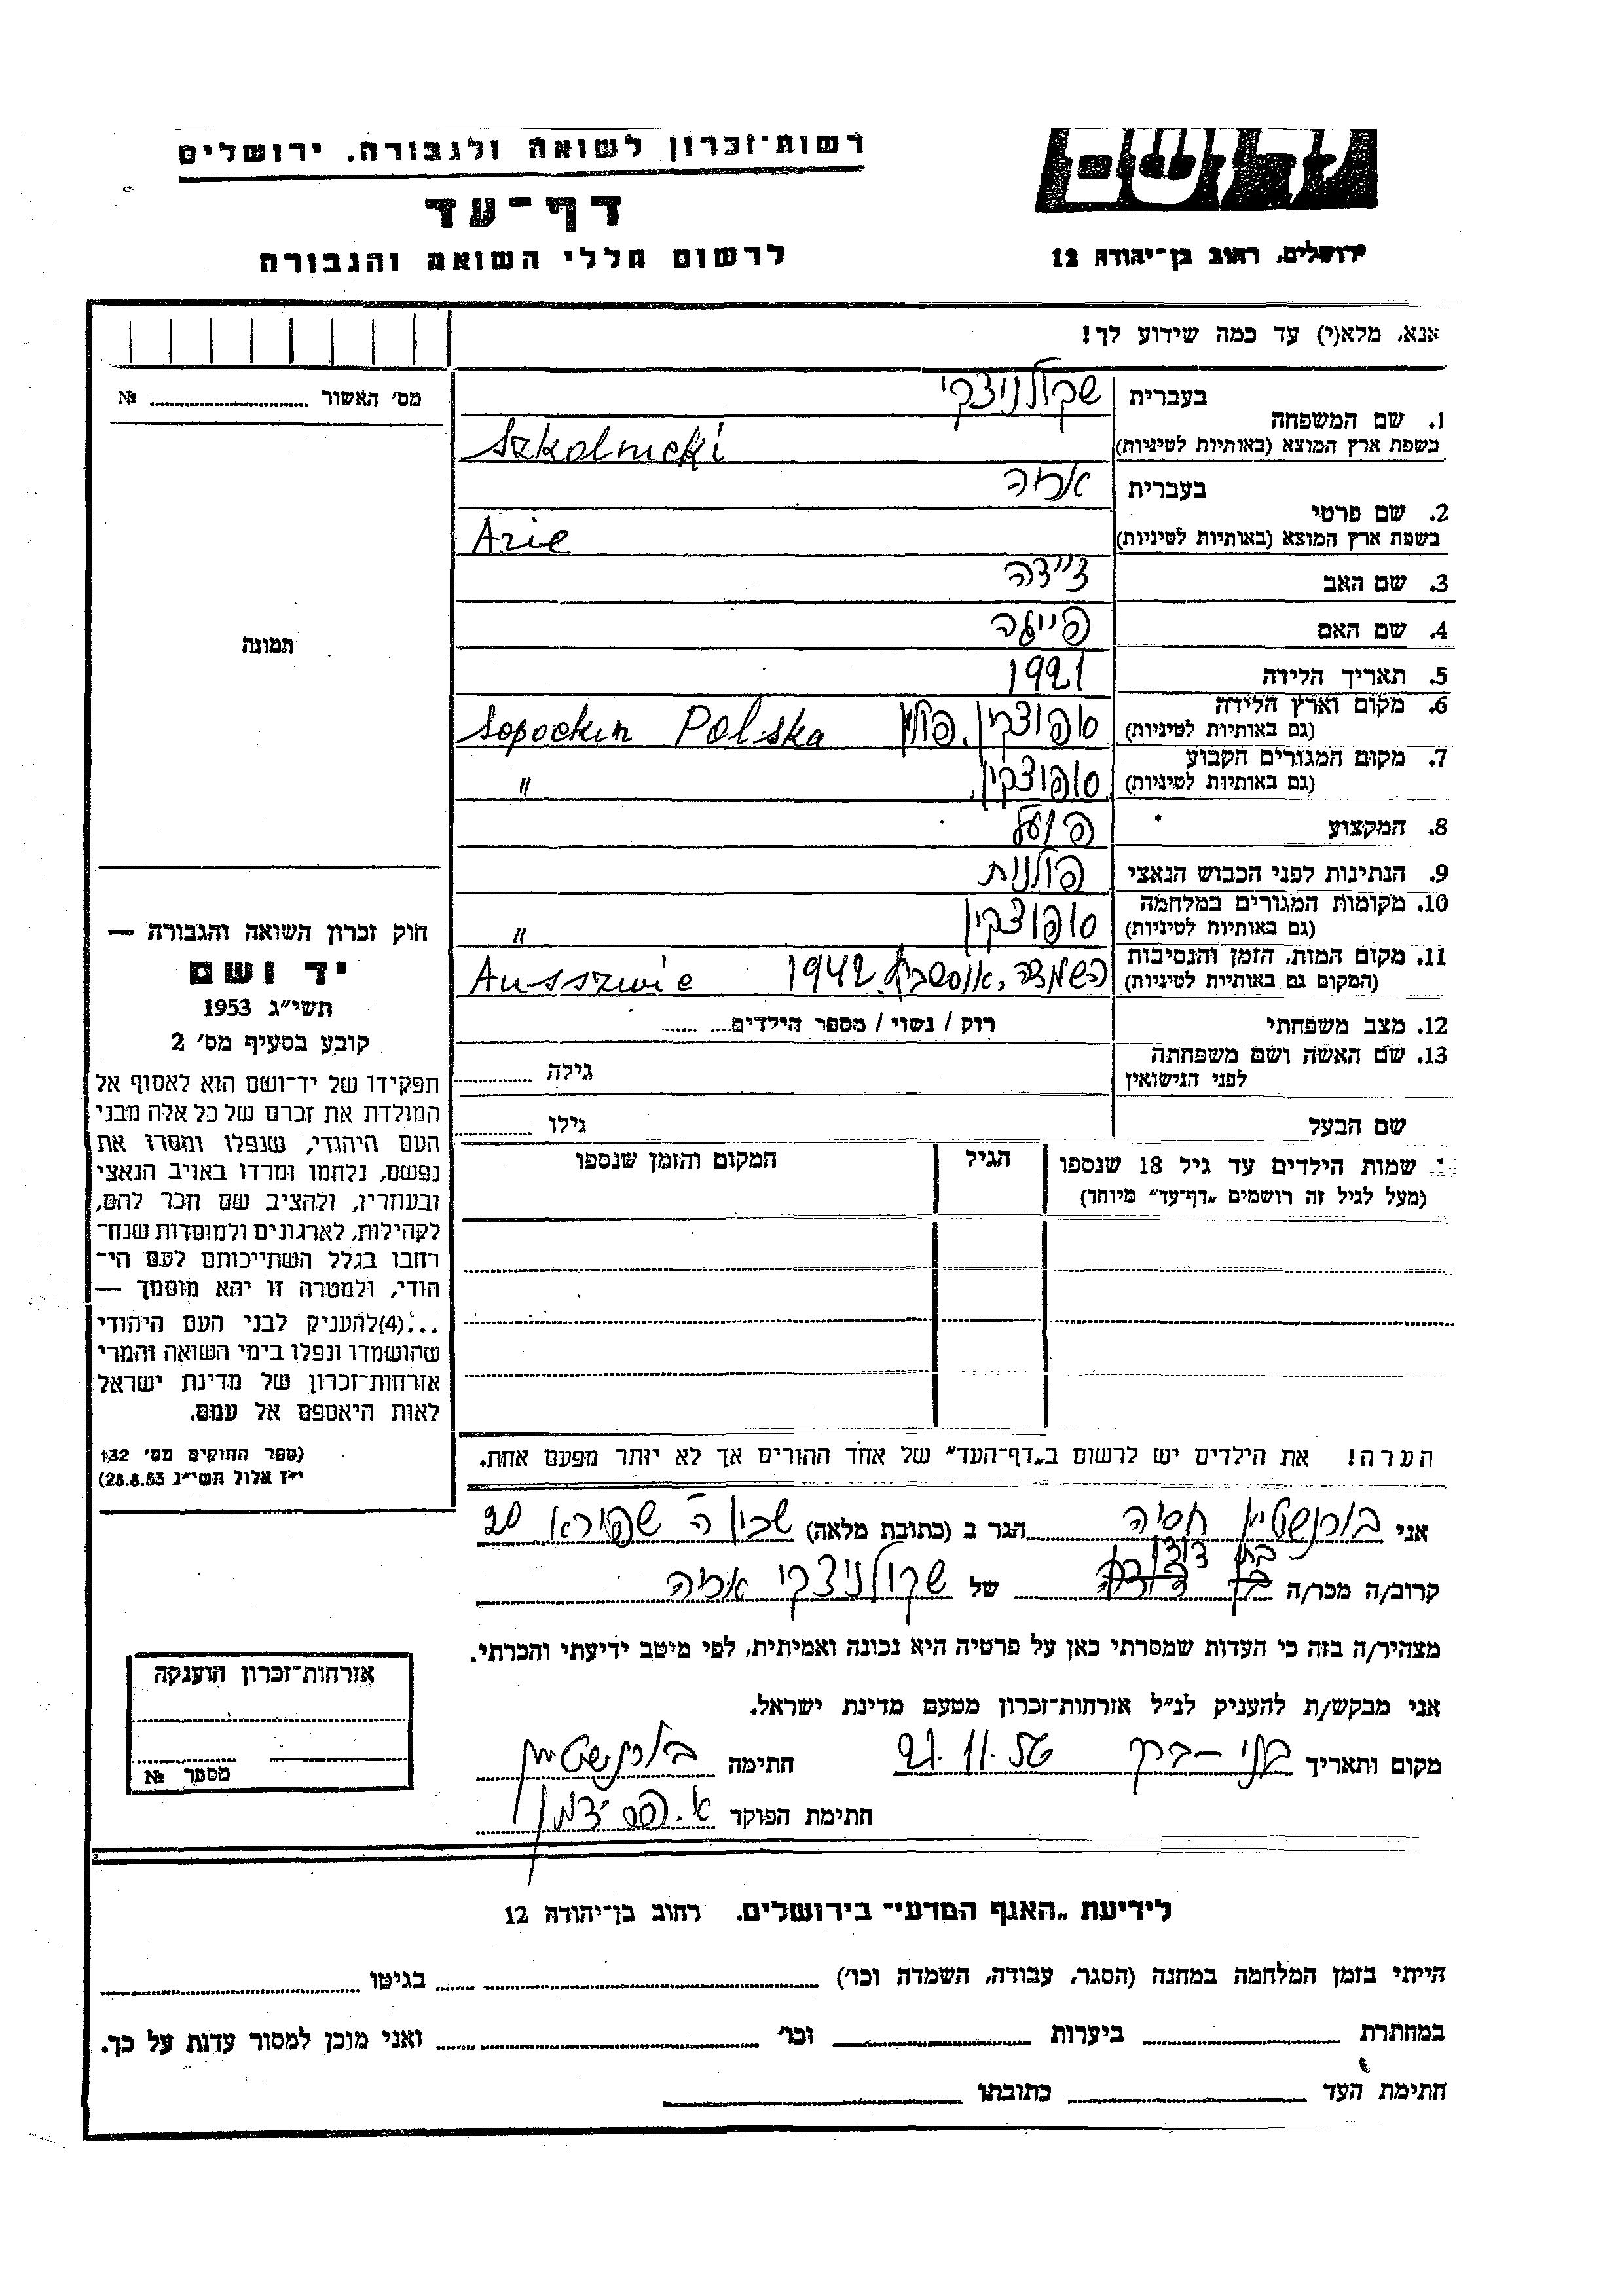 רשות־זכרון לשואה ולגבורה, ירושלים
דף־עד
לרשום חללי השואה והגבורה
יד ושם
ירושלים, רחוב בן־יהודה 12
אנא, מלא(י) עד כמה שידוע לך!
מס' האשור №
1. שם המשפחה בעברית שקולניצקי
בשפת ארץ המוצא (באותיות לטיניות) Szkolnicki
2. שם פרטי בעברית אריה
בשפת ארץ המוצא (באותיות לטיניות) Arie
3. שם האב זיידה
4. שם האם פייגה
5. תאריך הלידה 1921
6. מקום וארץ הלידה (גם באותיות לטיניות) סופוצקין, פולין Sopockin Polska
7. מקום המגורים הקבוע (גם באותיות לטיניות) סופוצקין, "
8. המקצוע פועל
9. הנתינות לפני הכבוש הנאצי פולנית
10. מקומות המגורים במלחמה (גם באותיות לטיניות) סופוצקין "
11. מקום המות, הזמן והנסיבות (המקום גם באותיות לטיניות) השמדה, 1942 Ausszwic
12. מצב משפחתי רוק / נשוי / מספר הילדים
13. שם האשה ושם משפחתה לפני הנישואין גילה
שם הבעל גילו
שמות הילדים עד גיל 18 שנספו (מעל לגיל זה רושמים „דף־עד" מיוחד) הגיל המקום והזמן שנספו
הערה! את הילדים יש לרשום ב„דף־העד" של אחד ההורים אך לא יותר מפעם אחת.
תמונה
חוק זכרון השואה והגבורה —
יד ושם
תשי״ג 1953
קובע בסעיף מס' 2
תפקידו של יד־ושם הוא לאסוף אל
המולדת את זכרם של כל אלה מבני
העם היהודי, שנפלו ומסרו את
נפשם, נלחמו ומרדו באויב הנאצי
ובעוזריו, ולהציב שם וזכר להם,
לקהילות, לארגונים ולמוסדות שנח־
רחבו בגלל השתייכותם לעם הי־
הודי, ולמטרה זו יהא מוסמך —
...(4)להעניק לבני העם היהודי
שהושמדו ונפלו בימי השואה והמרי
אזרחות־זכרון של מדינת ישראל
לאות היאספם אל עמם.
(ספר החוקים מס' 132
י״ז אלול תשי״ג 28.8.53)
אני בורנשטיין חסיה הגר ב (כתובת מלאה) שכון ה' שפירא 20
קרוב/ה מכר/ה בת דודו של שקולניצקי אריה
מצהיר/ה בזה כי העדות שמסרתי כאן על פרטיה היא נכונה ואמיתית, לפי מיטב ידיעתי והכרתי.
אני מבקש/ת להעניק לנ״ל אזרחות־זכרון מטעם מדינת ישראל.
מקום ותאריך בני-ברק 21.11.56 חתימה בורנשטיין
חתימת הפוקד
אזרחות־זכרון הוענקה
מספר №
לידיעת „האגף המדעי" בירושלים, רחוב בן־יהודה 12
הייתי בזמן המלחמה במחנה (הסגר, עבודה, השמדה וכו') בגיטו
במחתרת ביערות וכו' ואני מוכן למסור עדות על כך.
חתימת העד כתובתו